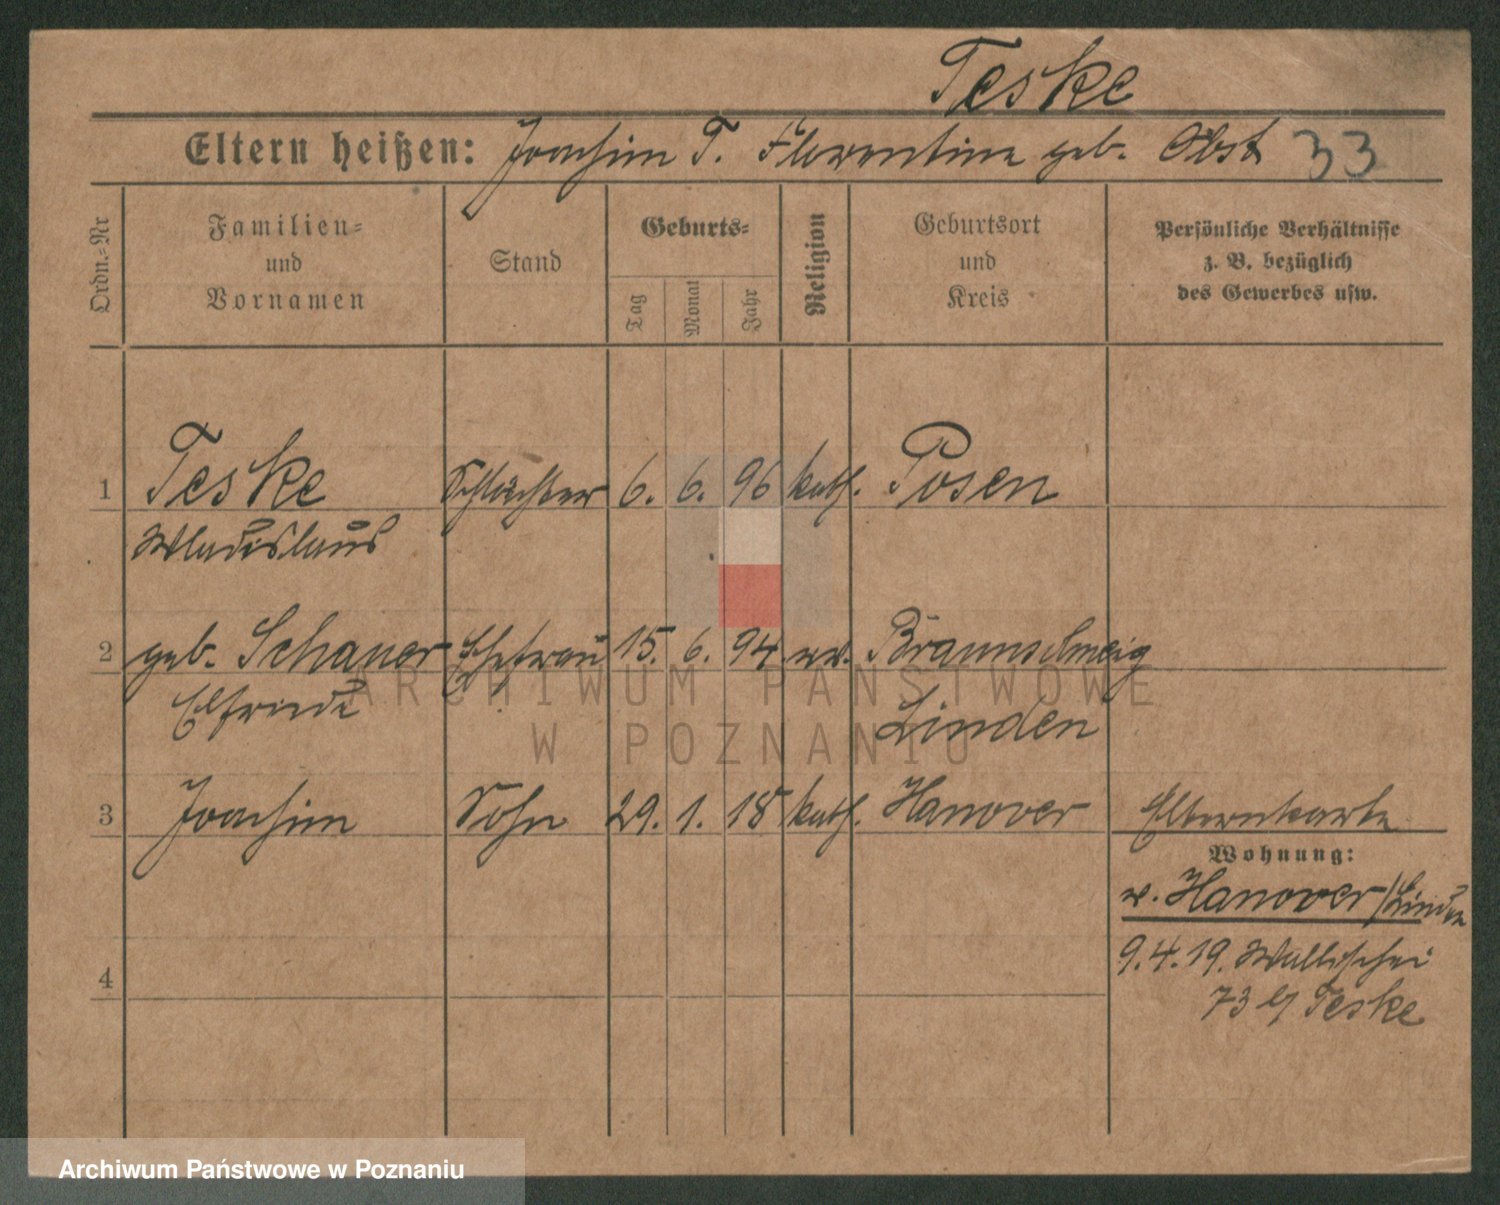 Teske
Eltern heißen: Joachim T. Florentine geb. Obst 33
Ordn.-Nr
Familien- und Vornamen
Stand
Geburts-
Tag
Monat
Jahr
Religion
Geburtsort und Kreis
Persönliche Verhältnisse
z. B. bezüglich
des Gewerbes usw.
1 Teske Schlächter 6. 6. 96 kath. Posen
Wladislaus
2 geb. Schauer Ehefrau 15. 6. 94 ev. Braunschweig
Elfriede Linden
3 Joachim Sohn 29. 1. 18 kath. Hanover Elternkarte
Wohnung:
v. Hanover/Linden
4 9.4.19. Wallischei
73 b/ Teske
ARCHIWUM PAŃSTWOWE
W POZNANIU
Archiwum Państwowe w Poznaniu